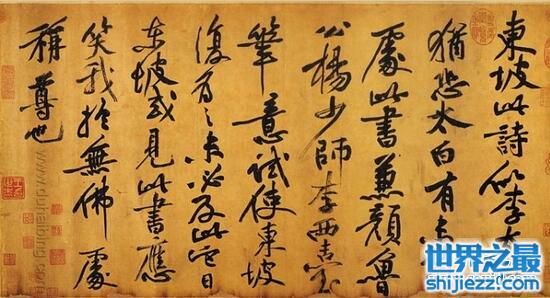 東坡此詩似李太
猶恐太白有未
處此書兼顏魯
公楊少師李西臺
筆意試使東坡
復為之未必及此它日
東坡或見此書應
笑我於無佛處
稱尊也
世界之最
shijiezz.com